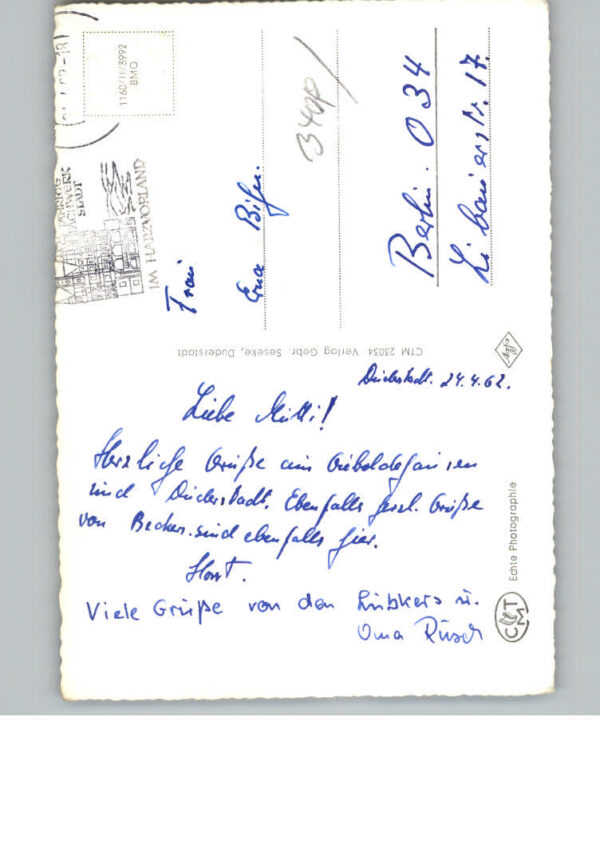 1160/II/3992
BMO
STADT
IM HARZVORLAND
Frau
Erna
Berlin. O 34
Libauerstr. 17.
340P/
CTM 23034 Verlag Gebr. Seseke, Duderstadt
Agfa
Duderstadt. 24.4.62.
Liebe Mutti!
Herzliche Grüße aus
und Duderstadt. Ebenfalls herzl. Grüße
von Beckers. sind ebenfalls hier.
Horst.
Viele Grüße von den Lübkers u.
Oma Rüsch
Echte Photographie
CTM